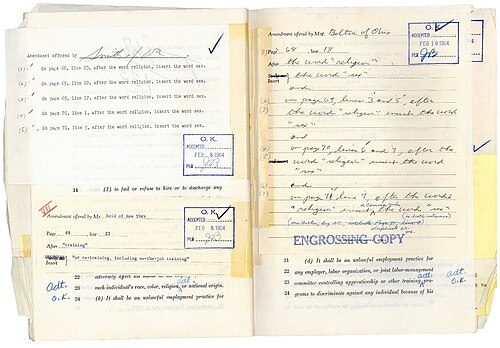 Amendment offered by Smith of Va
(1) On page 68, line 23, after the word religion, insert the word sex.
(2) On page 69, line 10, after the word religion, insert the word sex.
(3) On page 69, line 17, after the word religion, insert the word sex.
(4) On page 70, line 1, after the word religion, insert the word sex.
(5) On page 71, line 5, after the word religion, insert the word sex.
O. K.
ACCEPTED
FEB 8 1964
PER
16 (1) to fail or refuse to hire or to discharge any
III
Amendment offered by Mr. Reid of New York
Page 69 line 23
After "training"
Insert "or re-training, including on-the-job training"
O. K.
ACCEPTED
FEB 8 1964
PER
22 adversely
adt. 23 such individual's race, color, religion, or national origin.
O.K. 24 (b) It shall be unlawful employment practice for
Amendment offered by Mr. Bolton of Ohio
(1) Page 68, line 18
After the word "religion"
Insert the word "sex"
and
(2) on page 69, lines 3 and 5, after
(3) the word "religion" insert the word
"sex"
and
(4) on page 70, lines 5 and 7, after the
(5) word "religion" insert the word
"sex"
(6) and
(7) on page 71, line 9, after the words
"religion" insert the word "sex"
O. K.
ACCEPTED
FEB 10 1964
PER
ENGROSSING COPY
21 (d) It shall be an unlawful employment practice for
22 any employer, labor organization, or joint labor-management
adt. 23 committee controlling apprenticeship or other training pro-
O.K. 24 grams to discriminate against any individual because of his